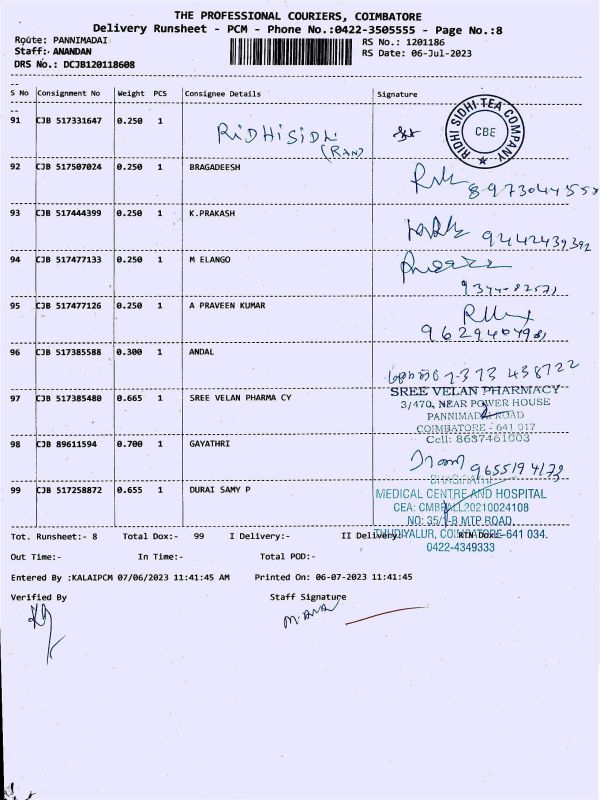 THE PROFESSIONAL COURIERS, COIMBATORE
Delivery Runsheet - PCM - Phone No.:0422-3505555 - Page No.:8
Route: PANNIMADAI
RS No.: 1201186
Staff:- ANANDAN
RS Date: 06-Jul-2023
DRS No.: DCJB120118608
S No Consignment No Weight PCS Consignee Details Signature
91 CJB 517331647 0.250 1 RIDHISIDHI
RIDHI SIDHI TEA COMPANY
CBE
92 CJB 517507024 0.250 1 BRAGADEESH
93 CJB 517444399 0.250 1 K.PRAKASH
9442439392
94 CJB 517477133 0.250 1 M ELANGO
95 CJB 517477126 0.250 1 A PRAVEEN KUMAR
96 CJB 517385588 0.300 1 ANDAL
97 CJB 517385480 0.665 1 SREE VELAN PHARMA CY
SREE VELAN PHARMACY
3/470, NEAR POWER HOUSE
PANNIMADAI ROAD
COIMBATORE - 641 017
Cell: 8637461003
98 CJB 89611594 0.700 1 GAYATHRI
99 CJB 517258872 0.655 1 DURAI SAMY P
MEDICAL CENTRE AND HOSPITAL
NO: 35/1-B MTP ROAD,
THUDIYALUR, COIMBATORE-641 034.
0422-4349333
Tot. Runsheet:- 8 Total Dox:- 99 I Delivery:- II Delivery:- RTN Dox:-
Out Time:- In Time:- Total POD:-
Entered By :KALAIPCM 07/06/2023 11:41:45 AM Printed On: 06-07-2023 11:41:45
Verified By Staff Signature